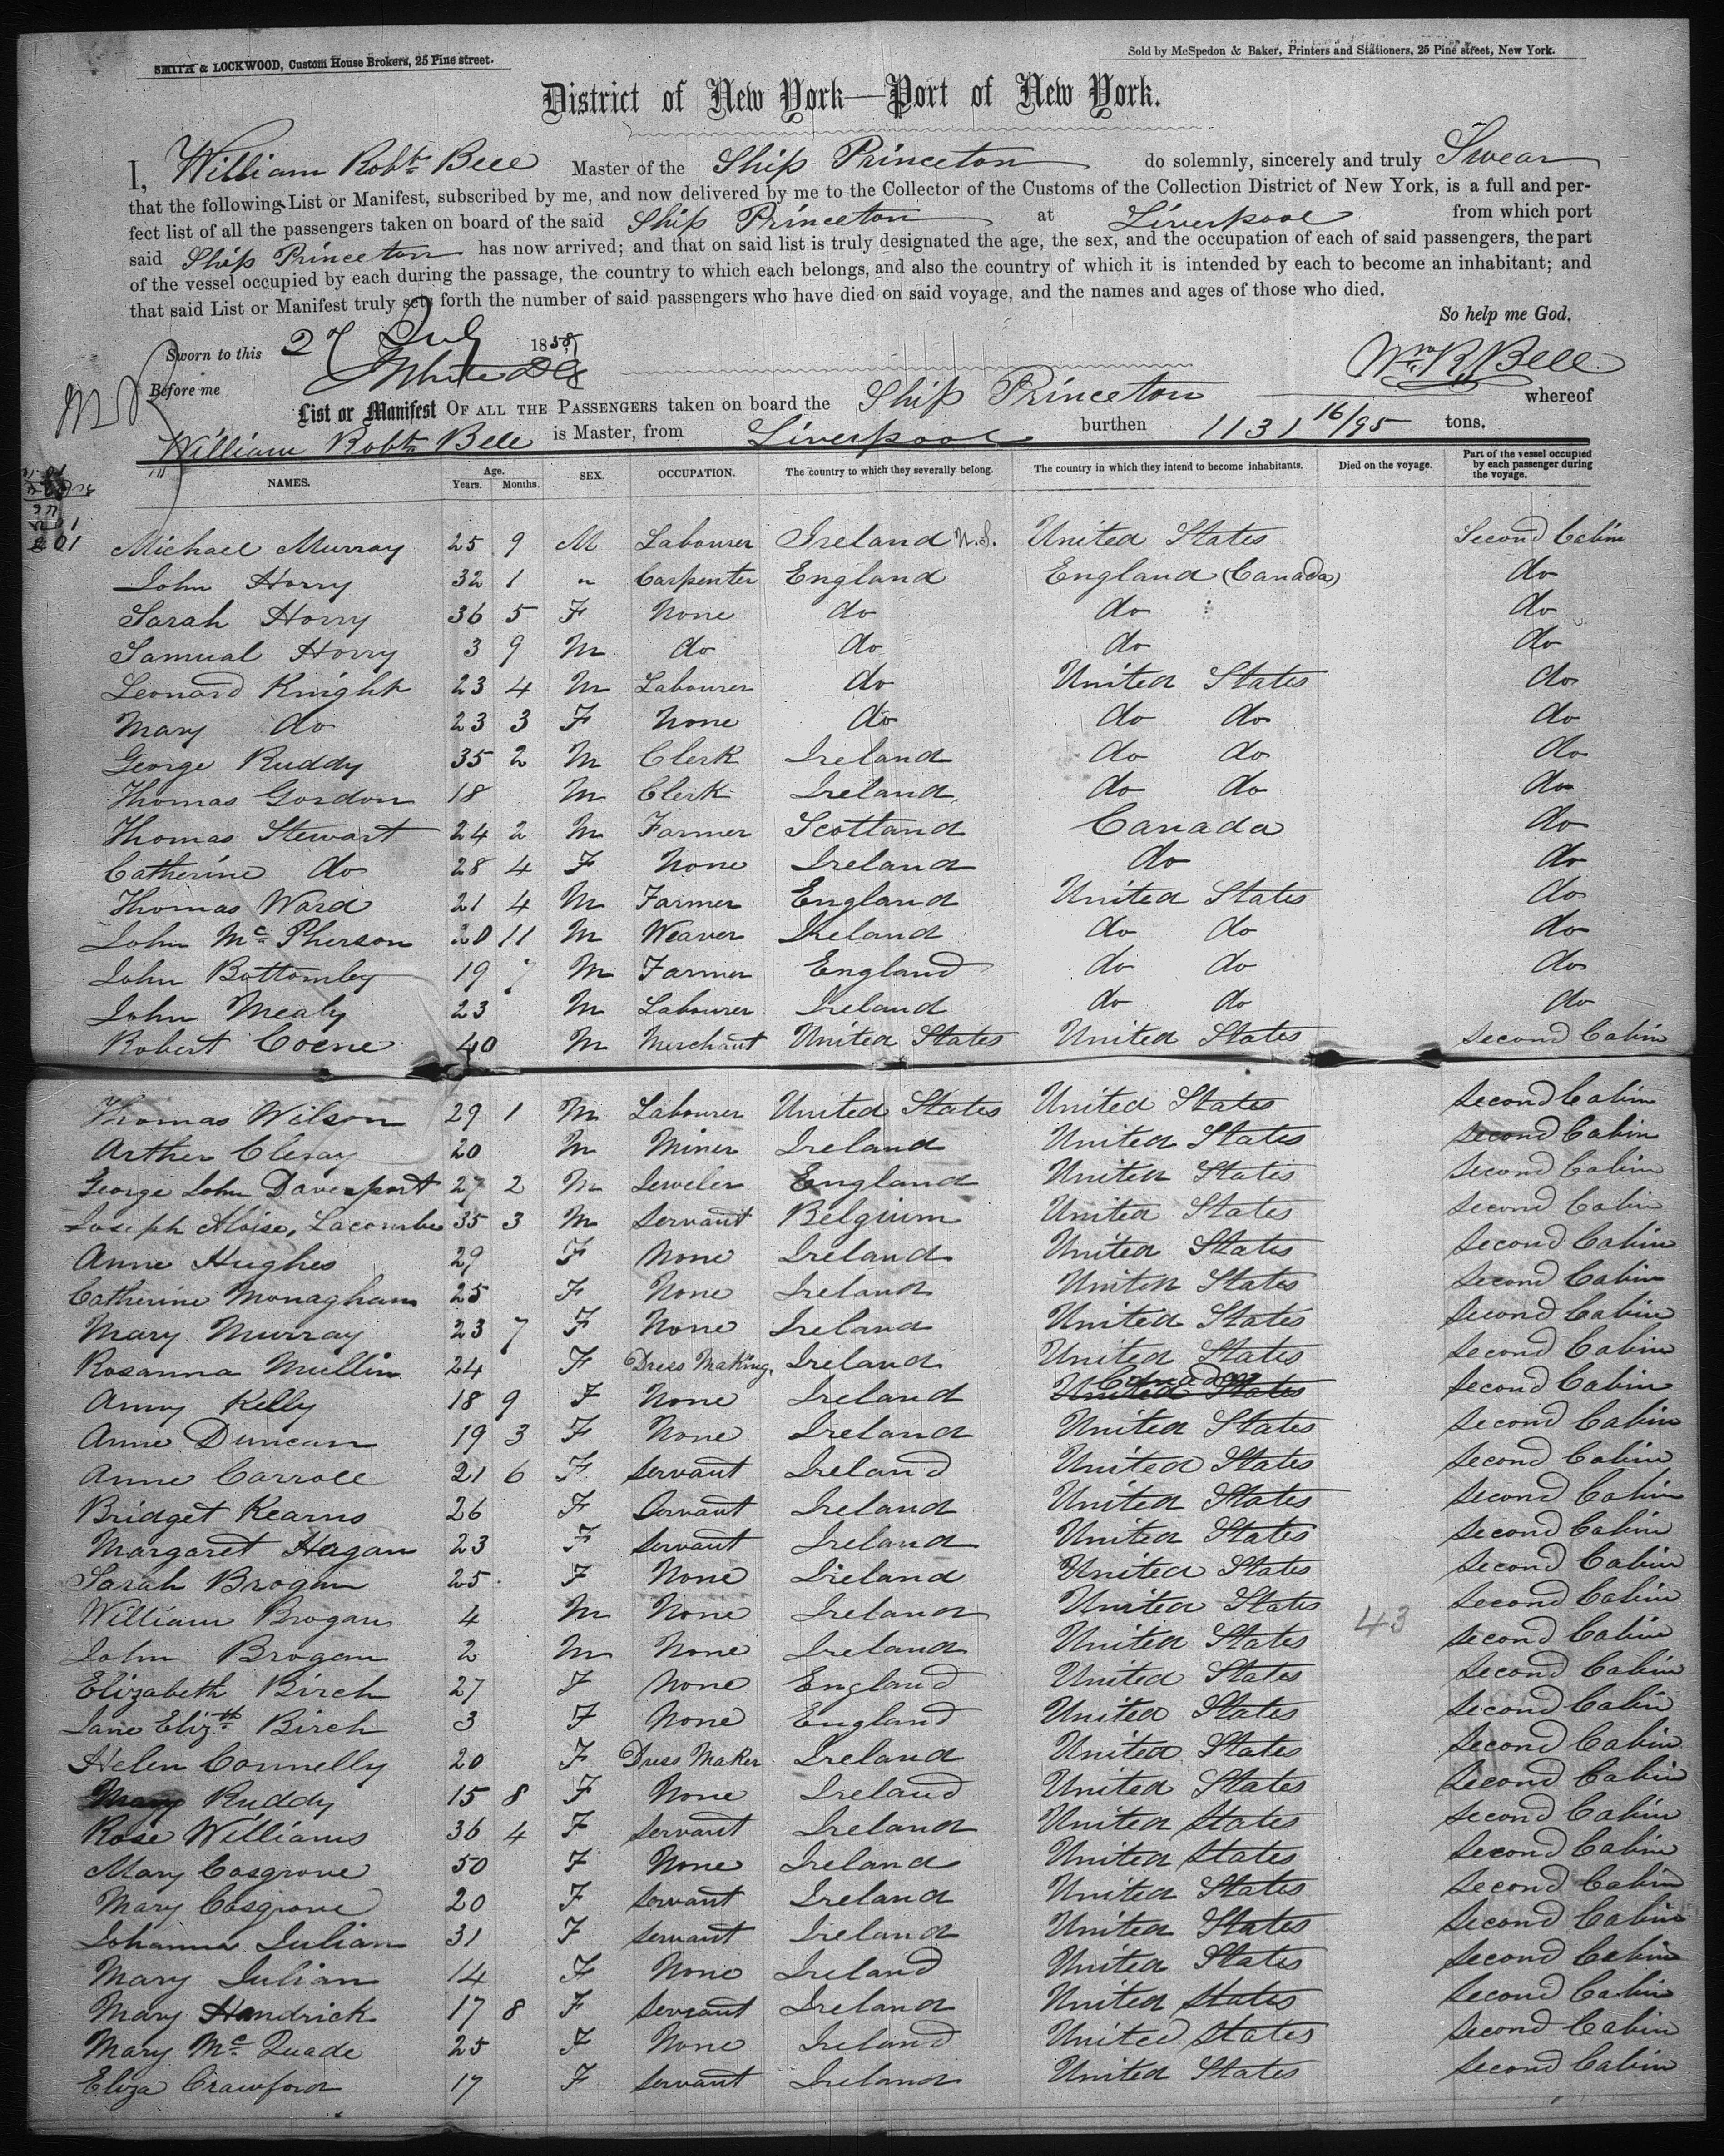 SMITH & LOCKWOOD, Custom House Brokers, 25 Pine street.
Sold by McSpedon & Baker, Printers and Stationers, 25 Pine street, New York.
District of New York—Port of New York.
I, William Robt Bell Master of the Ship Princeton do solemnly, sincerely and truly Swear
that the following List or Manifest, subscribed by me, and now delivered by me to the Collector of the Customs of the Collection District of New York, is a full and per-
fect list of all the passengers taken on board of the said Ship Princeton at Liverpool from which port
said Ship Princeton has now arrived; and that on said list is truly designated the age, the sex, and the occupation of each of said passengers, the part
of the vessel occupied by each during the passage, the country to which each belongs, and also the country of which it is intended by each to become an inhabitant; and
that said List or Manifest truly sets forth the number of said passengers who have died on said voyage, and the names and ages of those who died.
So help me God.
Sworn to this 27 July 1858
Wm R Bell
Before me
List or Manifest OF ALL THE PASSENGERS taken on board the Ship Princeton whereof
William Robt Bell is Master, from Liverpool burthen 1131 16/95 tons.
NAMES. Age. Years. Months. SEX. OCCUPATION. The country to which they severally belong. The country in which they intend to become inhabitants. Died on the voyage. Part of the vessel occupied by each passenger during the voyage.
Michael Murray 25 9 M Labourer Ireland U.S. United States Second Cabin
John Horry 32 1 " Carpenter England England (Canada) do
Sarah Horry 36 5 F None do do do
Samual Horry 3 9 M do do do do
Leonard Knight 23 4 M Labourer do United States do
Mary do 23 3 F None do do do do
George Ruddy 35 2 M Clerk Ireland do do do
Thomas Gordon 18 M Clerk Ireland do do do
Thomas Stewart 24 2 M Farmer Scotland Canada do
Catherine do 28 4 F None Ireland do do
Thomas Ward 21 4 M Farmer England United States do
John McPherson 20 11 M Weaver Ireland do do do
John Bottomley 19 7 M Farmer England do do do
John Mealy 23 M Labourer Ireland do do do
Robert Coene 40 M Merchant United States United States Second Cabin
Thomas Wilson 29 1 M Labourer United States United States Second Cabin
Arther Cleray 20 M Miner Ireland United States Second Cabin
George John Davenport 27 2 M Jeweler England United States Second Cabin
Joseph Aloise, Lacombe 35 3 M Servant Belgium United States Second Cabin
Anne Hughes 29 F None Ireland United States Second Cabin
Catherine Monaghan 25 F None Ireland United States Second Cabin
Mary Murray 23 7 F None Ireland United States Second Cabin
Rosanna Mullin 24 F Dress Making Ireland United States Second Cabin
Anny Kelly 18 9 F None Ireland United States Canada Second Cabin
Anne Duncan 19 3 F None Ireland United States Second Cabin
Anne Carroll 21 6 F Servant Ireland United States Second Cabin
Bridget Kearns 26 F Servant Ireland United States Second Cabin
Margaret Hagan 23 F Servant Ireland United States Second Cabin
Sarah Brogan 25 F None Ireland United States Second Cabin
William Brogan 4 M None Ireland United States 43 Second Cabin
John Brogan 2 M None Ireland United States Second Cabin
Elizabeth Birch 27 F None England United States Second Cabin
Jane Elizth Birch 3 F None England United States Second Cabin
Helen Connelly 20 F Dress Maker Ireland United States Second Cabin
Mary Ruddy 15 8 F None Ireland United States Second Cabin
Rose Williams 36 4 F Servant Ireland United States Second Cabin
Mary Cosgrove 50 F None Ireland United States Second Cabin
Mary Cosgrove 20 F Servant Ireland United States Second Cabin
Johanna Julian 31 F Servant Ireland United States Second Cabin
Mary Julian 14 F None Ireland United States Second Cabin
Mary Hendrick 17 8 F Servant Ireland United States Second Cabin
Mary McQuade 25 F None Ireland United States Second Cabin
Eliza Crawford 17 F Servant Ireland United States Second Cabin